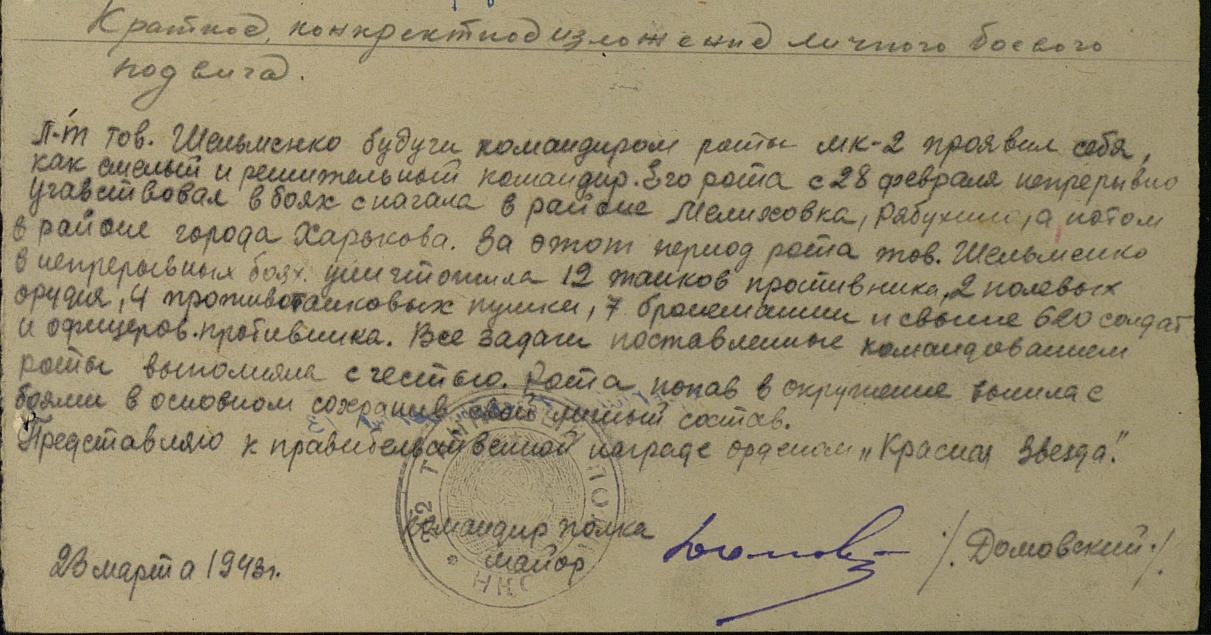 Краткое, конкретное изложение личного боевого
подвига.
Л-т тов. Шельменко будучи командиром роты мк-2 проявил себя,
как смелый и решительный командир. Его рота с 28 февраля непрерывно
учавствовал в боях сначала в районе Мелиховка, Рябухино, а потом
в районе города Харькова. За этот период рота тов. Шельменко
в непрерывных боях уничтожила 12 танков противника, 2 полевых
орудия, 4 противотанковых пушки, 7 бронемашин и свыше 620 солдат
и офицеров противника. Все задачи поставленные командованием
роты выполняла с честью. Рота попав в окружение вышла с
боями в основном сохранив свой личный состав.
Представляю к правительственной награде орденом „Красная Звезда."
Командир полка
майор /Домовский/
23 марта 1943г.
НКО